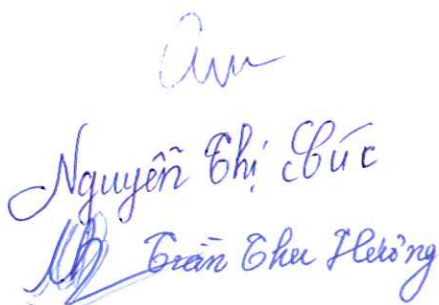 Nguyễn Thị Cúc
Trần Thu Hường